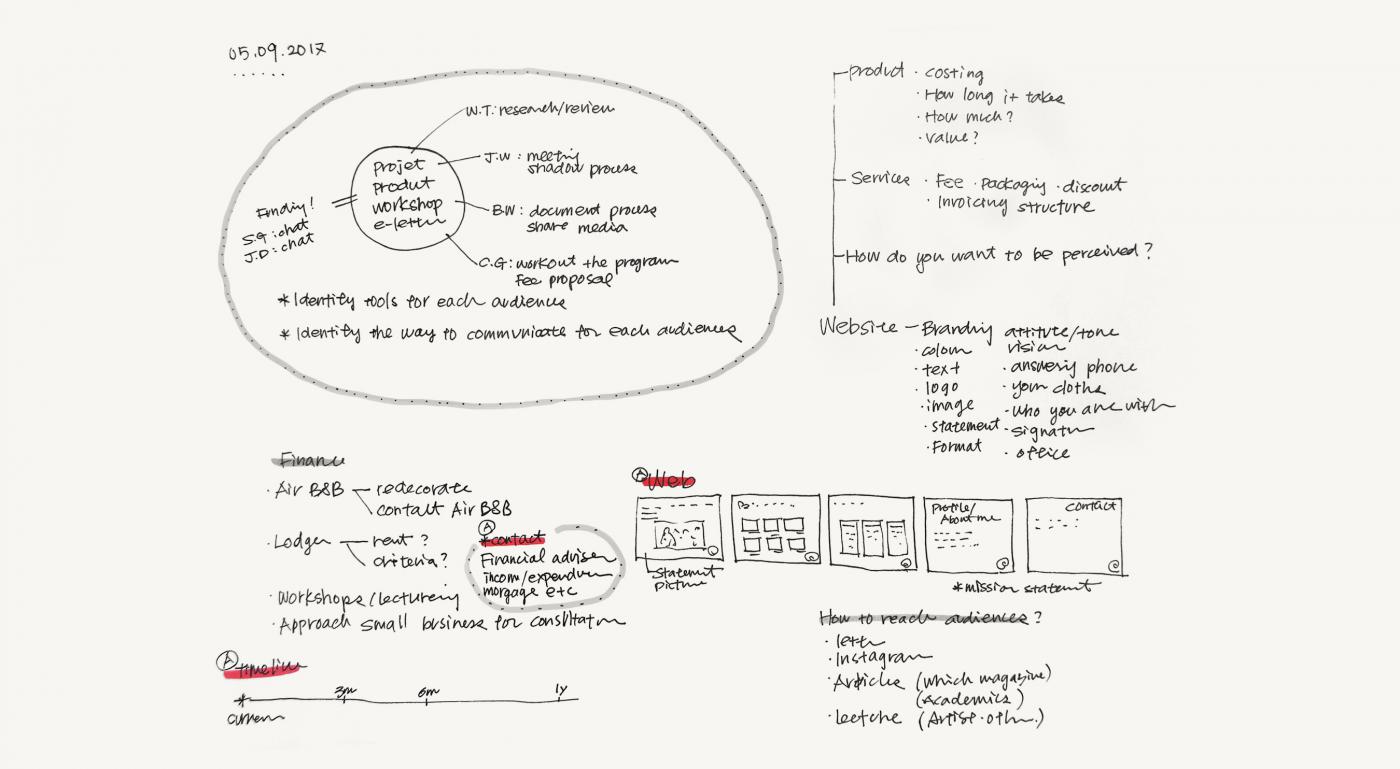 05.09.2017
W.T: research/review
J.W: meeting
shadow process
Projet
Produt
workshop
e-letter
Funding!
S.G: chat
J.D: chat
B.W: document process
share media
C.G: workout the program
Fee proposal
* Identify tools for each audiences
* Identify the way to communicate for each audiences
product · costing
· How long it takes
· How much?
· value?
Services · Fee · Packaging · discount
· Invoicing structure
How do you want to be perceived?
Website – Branding attitute/tone
· colour vision
· text · answering phone
· logo · your clothe
· image · who you are with
· statement · signature
· Format · office
Finance
· Air B&B – redecorate
contact Air B&B
· Lodger – rent ?
criteria?
A
*contact
Financial adviser
income/expenditure
morgage etc
· Workshops/lecturing
· Approach small business for consultation
A Timeline
3m 6m 1y
current
A Web
Profile/
About me
contact
Statement
picture
*mission statement
How to reach audiences?
· letter
· Instagram
· Articles (which magazine)
(Academics)
· Lectche (Artist · other.)